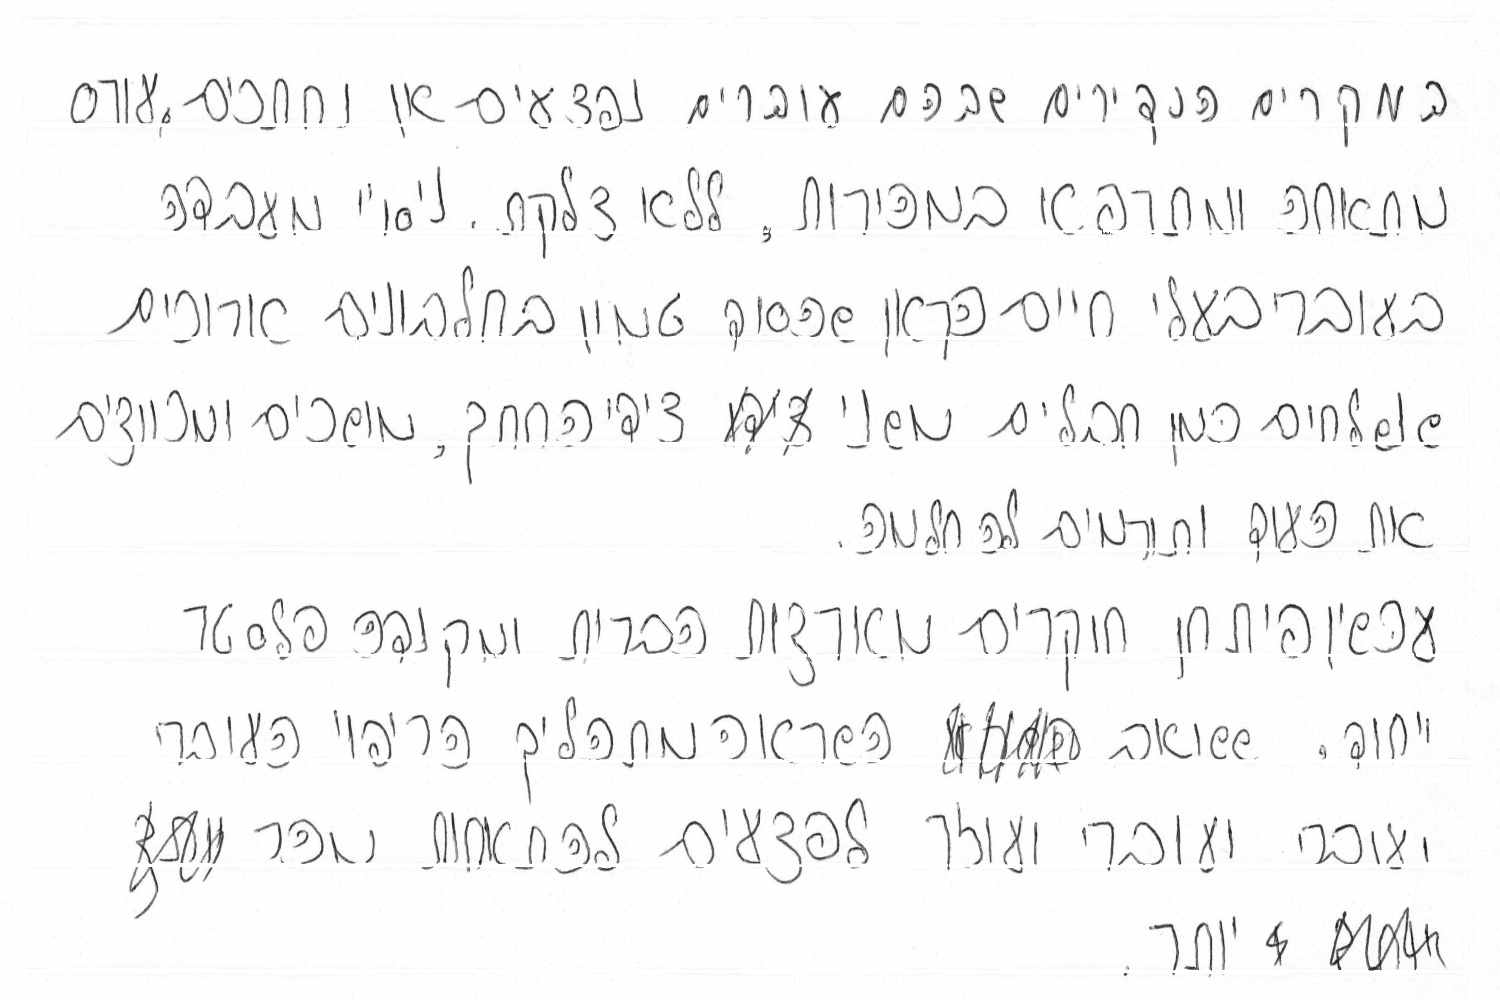 במקרים הנדירים שבהם עוברים נפצעים או ונחתכים, עורם
מתאחה ומתרפא במהירות, ללא צלקת. ניסויי מעבדה
בעוברי בעלי חיים הראו שהסוד טמון בחלבונים ארוכים
שנשלחים כמו חבלים משני צידי החתך, מושכים ומכווצים
את העור ותורמים להחלמה.
עכשיו פיתחו חוקרים מארצות הברית ומקנדה פלסטר
ייחודי, ששואב השראה מתהליך הריפוי העוברי
ועוברי ועוברי ועוזר לפצעים להתאחות מהר
יותר.